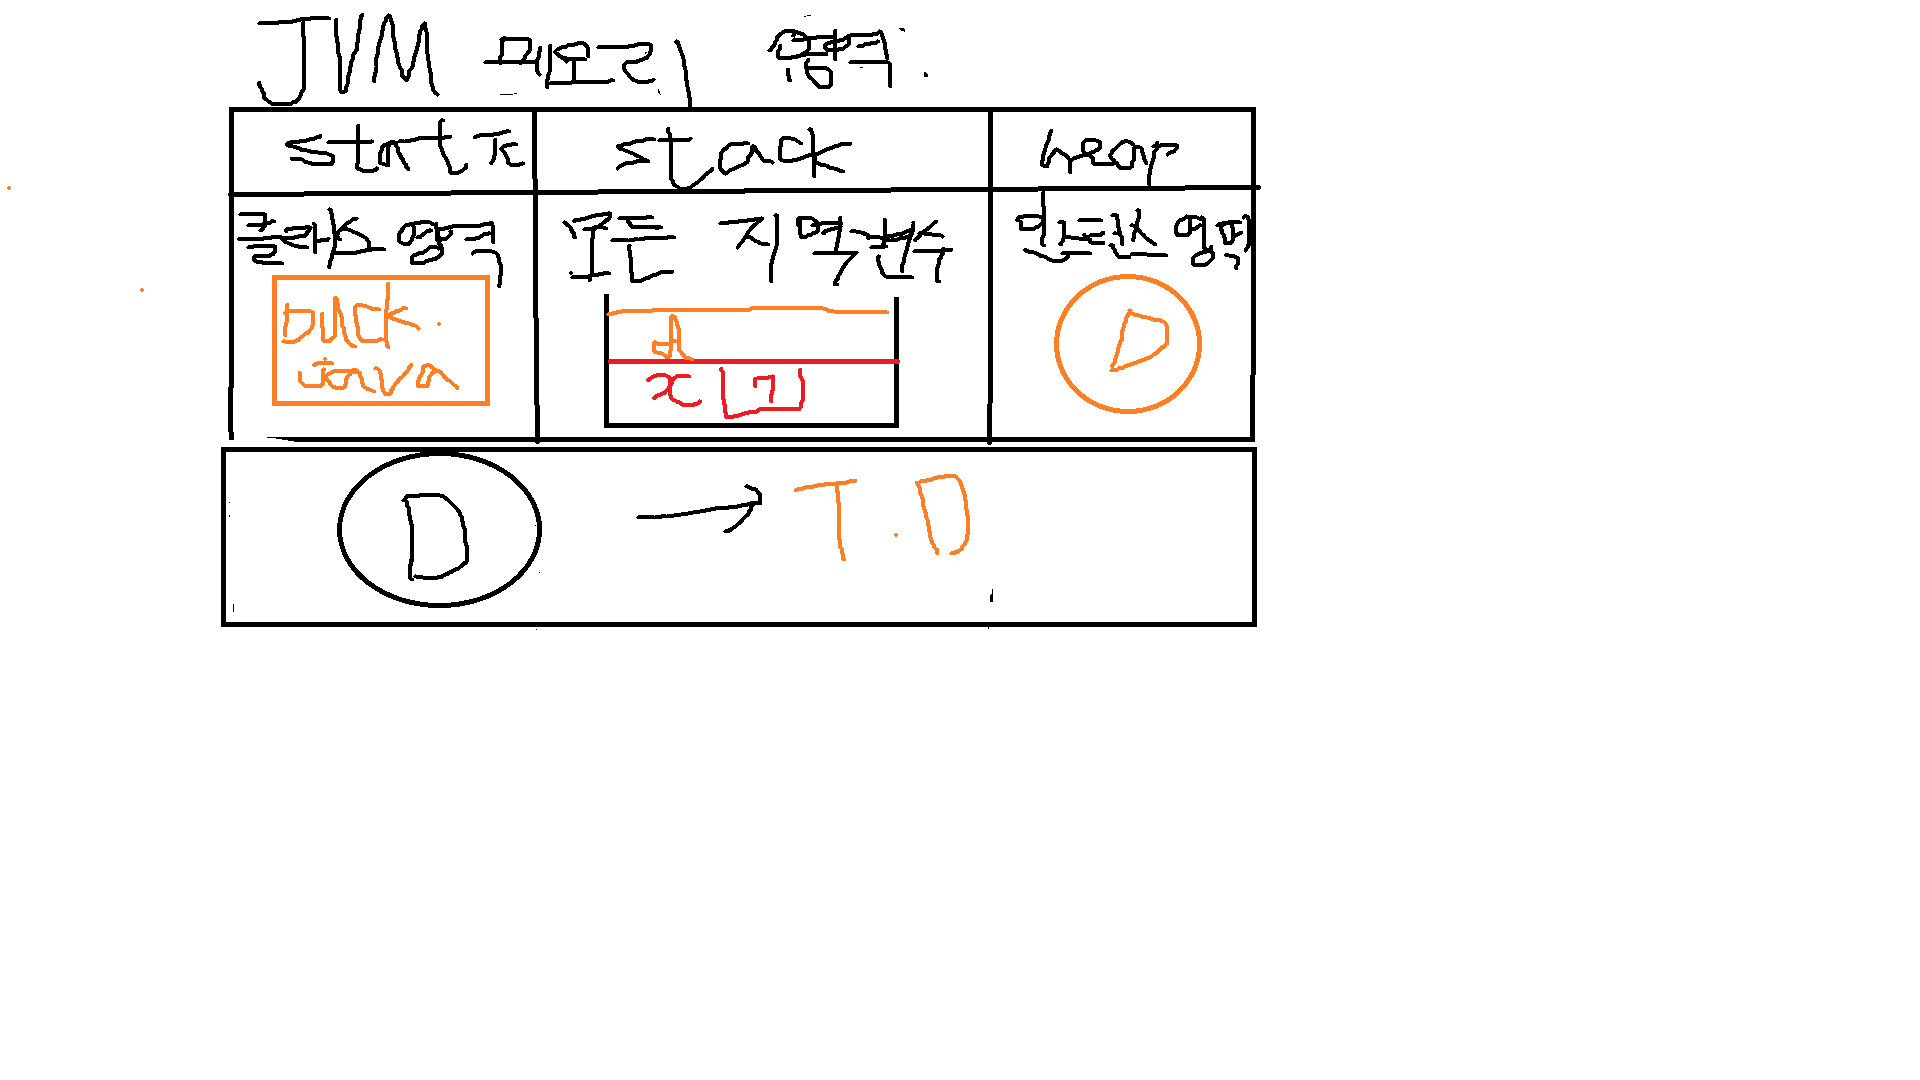 JVM 메모리 영역.
stack
heap
클래스 영역
모든 지역변수
인스턴스 영역
Duck.
java
d
x 7
D
D → T.D